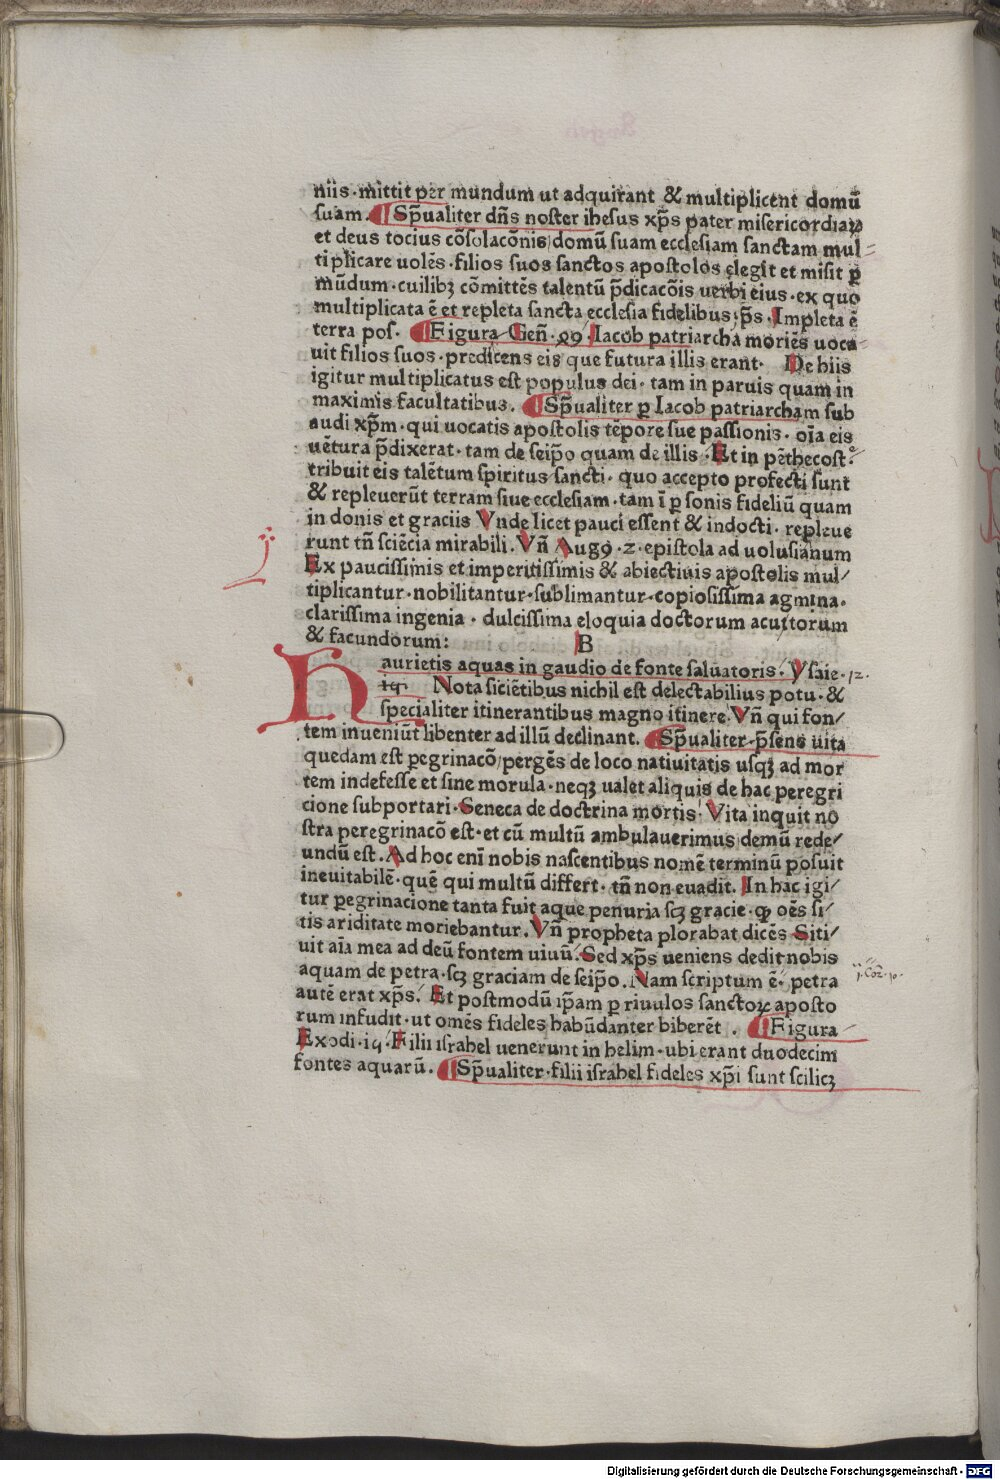 niis·mittit per mundum ut adquirant & multiplicent domū
suam. ¶ Sp̄ualiter dn̄s noster ihesus xp̄s pater misericordiaꝝ
et deus tocius cōsolacōnis/domū suam ecclesiam sanctam mul-
tiplicare uolēs·filios suos sanctos apostolos elegit et misit ꝑ
mūdum·cuilibꝫ cōmittēs talentū p̄dicacōis uerbi eius·ex quo
multiplicata ē et repleta sancta ecclesia fidelibus;ps̄. Impleta ē
terra pos· ¶ Figura Geñ·ꝝ9·Iacob patriarcha moriēs uoca-
uit filios suos·predicens eis que futura illis erant· De hiis
igitur multiplicatus est populus dei·tam in paruis quam in
maximis facultatibus. ¶ Sp̄ualiter ꝑ Iacob patriarcham sub
audi xp̄m·qui uocatis apostolis tēpore sue passionis·oīa eis
uētura p̄dixerat·tam de seip̄o quam de illis·Et in pēthecost.e
tribuit eis talētum spiritus sancti·quo accepto profecti sunt
& repleuerūt terram siue ecclesiam·tam ī ꝑsonis fideliū quam
in donis et graciis Vnde licet pauci essent & indocti·repleue
runt tn̄ sciēcia mirabili.Vñ Augꝰ·2·epistola ad uolusianum
Ex paucissimis et imperitissimis & abiectiuis apostolis mul/
tiplicantur·nobilitantur·sublimantur·copiosissima agmina·
clarissima ingenia·dulcissima eloquia doctorum acutorum
& facundorum: B
Haurietis aquas in gaudio de fonte saluatoris·Ysaie·12.
iq· Nota siciētibus nichil est delectabilius potu·&
specialiter itinerantibus magno itinere.Vñ qui fon/
tem inueniūt libenter ad illū declinant. ¶ Sp̄ualiter·p̄sens uita
quedam est ꝑegrinacō/pergēs de loco natiuitatis usqꝫ ad mor
tem indefesse et sine morula·neqꝫ ualet aliquis de hac peregri
cione subportari·Seneca de doctrina mortis·Vita inquit no
stra peregrinacō est·et cū multū ambulauerimus/demū rede/
undū est.Ad hoc enī nobis nascentibus nomē terminū posuit
ineuitabilē·quē qui multū differt·tn̄ non euadit. In hac igi/
tur ꝑegrinacione tanta fuit aque penuria scꝫ gracie·ꝙ oēs si/
tis ariditate moriebantur.Vñ propheta plorabat dicēs Siti/
uit aīa mea ad deū fontem uiuū.Sed xp̄s ueniens dedit nobis
aquam de petra·scꝫ graciam de seip̄o.Nam scriptum ē·petra
autē erat xp̄s. Et postmodū ip̄am ꝑ riuulos sanctoꝝ aposto
1.Cor̄.10.
rum infudit·ut omēs fideles habūdanter biberēt. ¶ Figura
Exodi·iq·Filii israhel uenerunt in helim·ubi erant duodecim
fontes aquarū. ¶ Sp̄ualiter·filii israhel fideles xp̄i sunt scilicꝫ
Digitalisierung gefördert durch die Deutsche Forschungsgemeinschaft - DFG